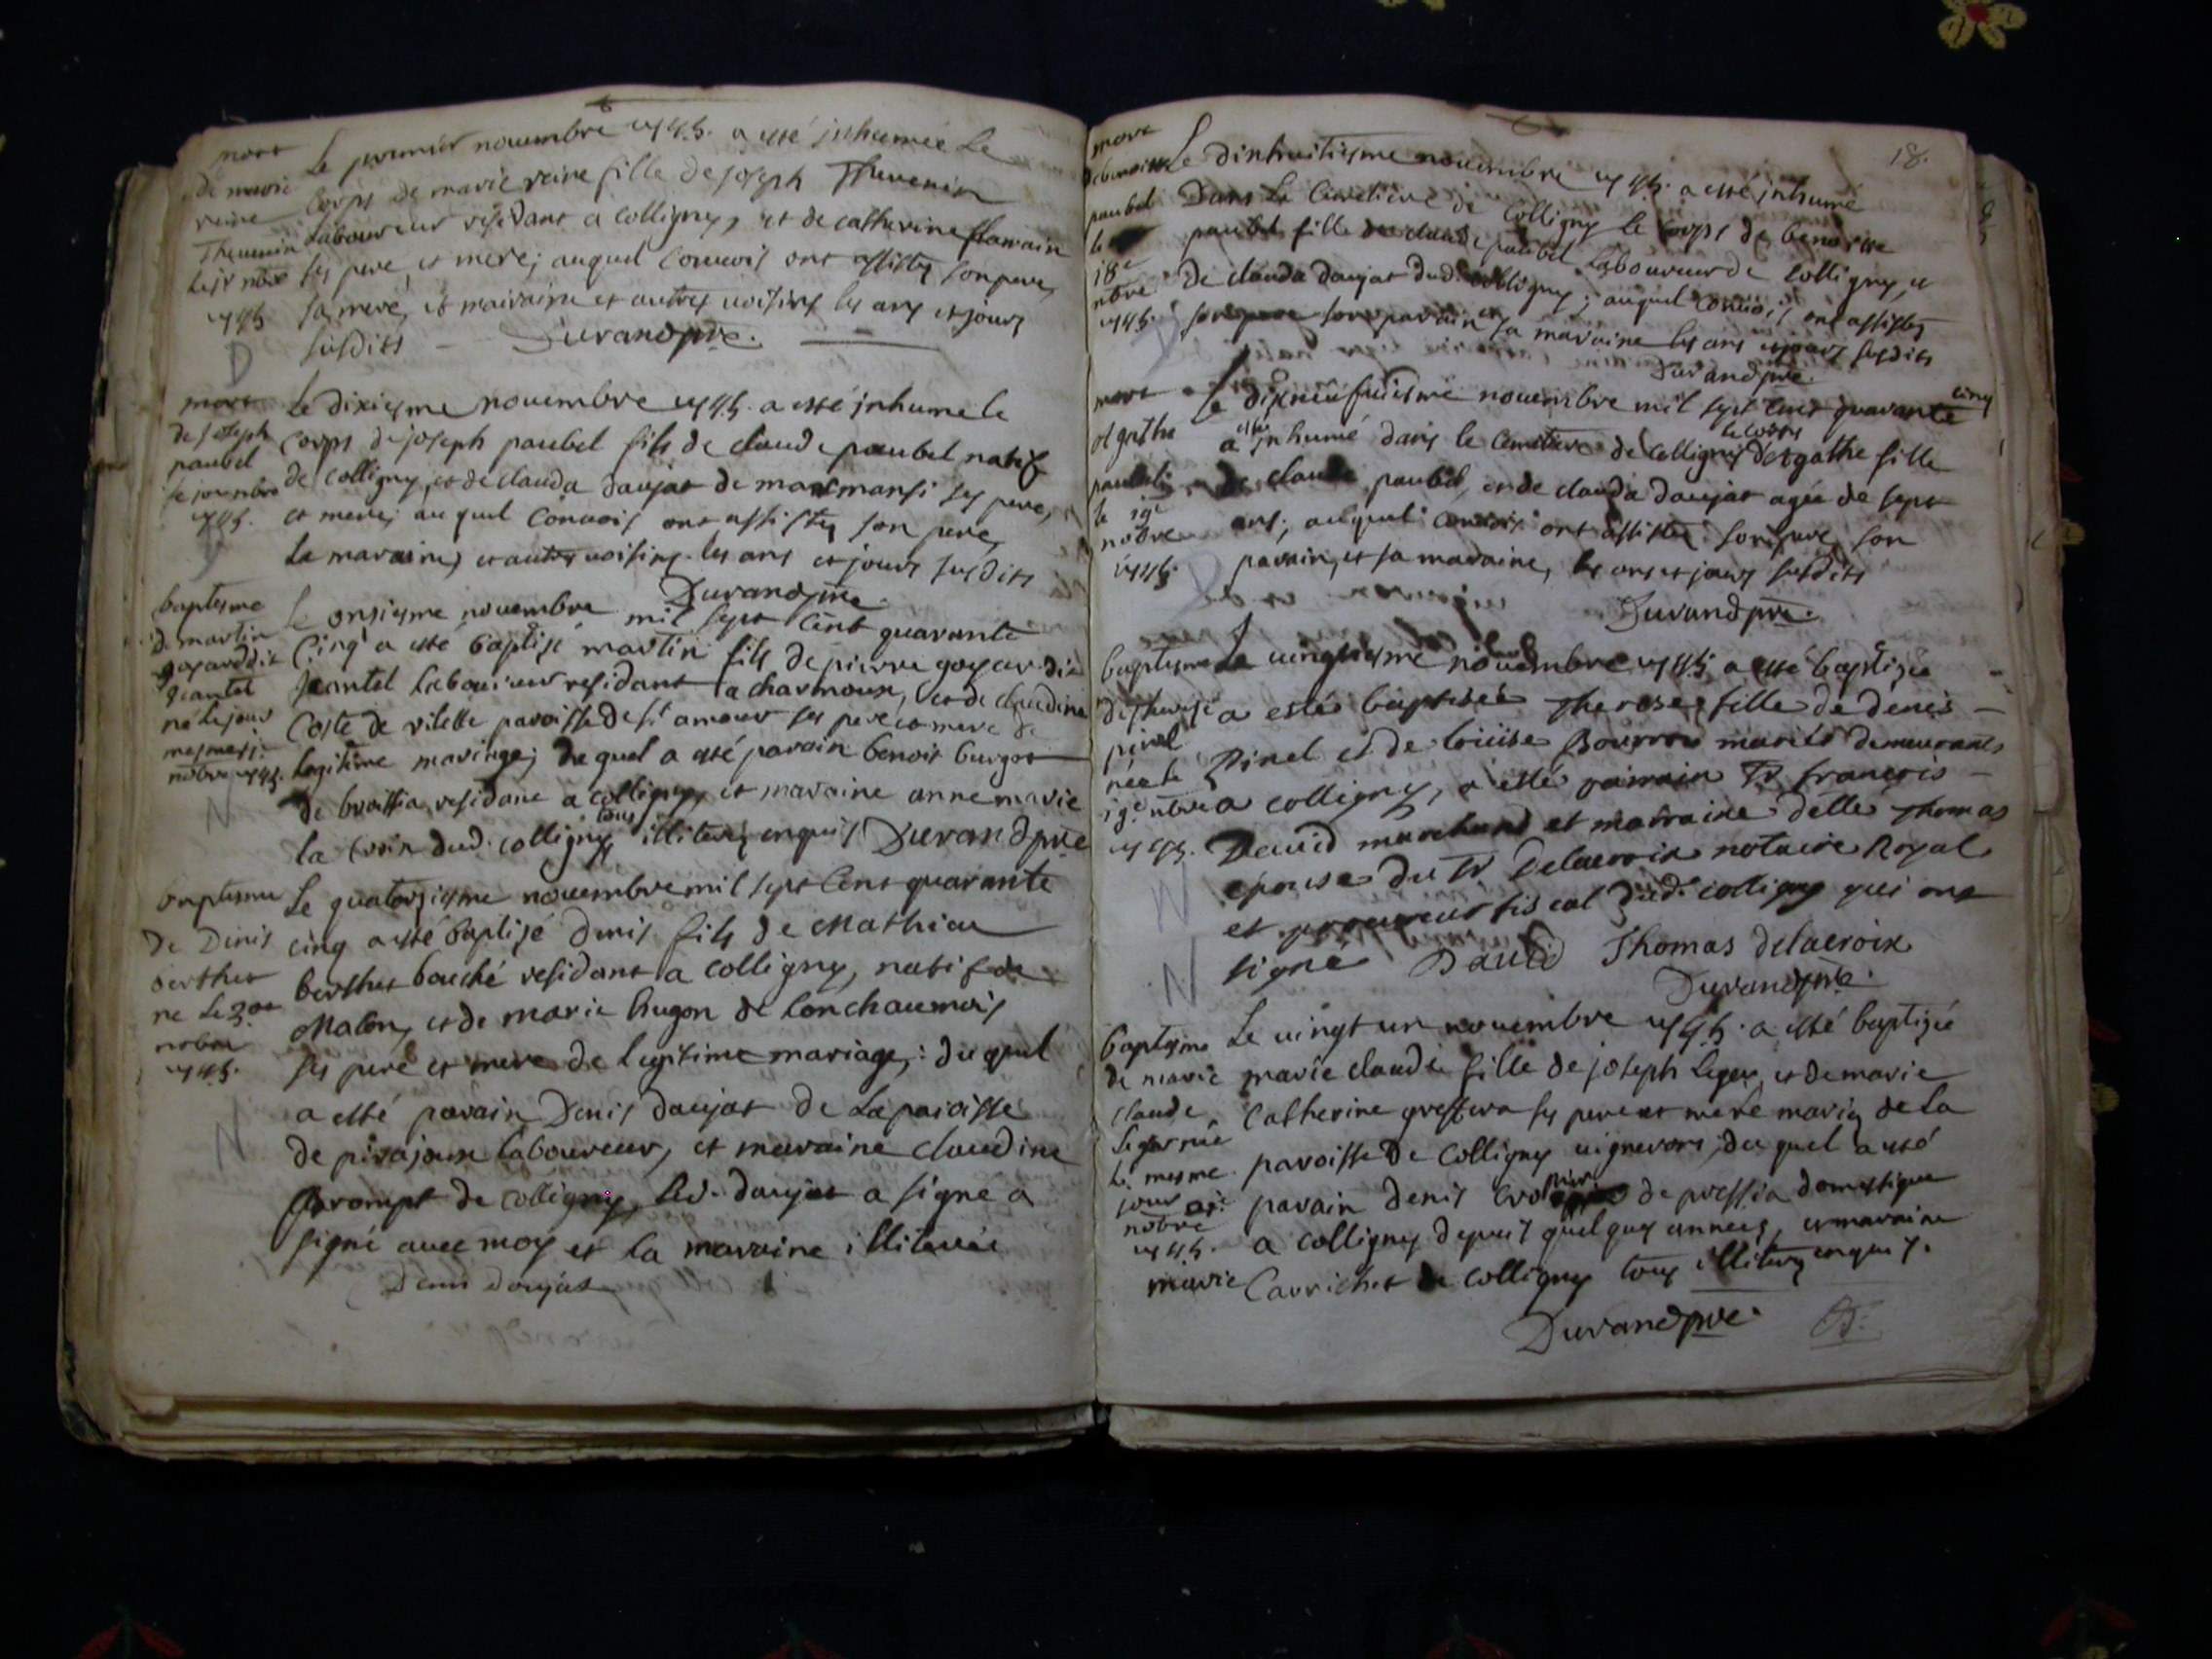 mort
de marie
reine
Thevenin
le 1r nbre
1745
D
Le premier novembre 1745. a esté inhumée le
corps de marie reine fille de joseph Thevenin
laboureur residant a colligny, et de catherine
ses pere, et mere; auquel convois ont assistez son pere,
sa mere, et maraine et autres voisins les ans et jours
susdits
Durand pre.
mort
de joseph
paubel
le jour nbre
1745.
Le dixiesme novembre 1745. a esté inhumé le
corps de joseph paubel fils de claude paubel natif
de colligny, et de clauda daujat de marmansi ses pere,
et mere; auquel convois ont assistez son pere,
la maraine, et autres voisins les ans et jours susdits
Durand pre.
baptesme
de martin
goyard dit
né le jour
mesme
nobre 1745.
N
Le onsiesme novembre mil sept cent quarante
cinq a esté baptisé martin fils de pierre goyar dit
laboureur residant a charmoux, et de claudine
Coste de vilette paroisse de st amour ses pere et mere de
legitime mariage; du quel a esté parain benoit burgot
de broissia residant a colligny, et maraine anne marie
la croix dud. colligny tous illiterez enquis Durand pre
baptesme
De Denis
berthet
ne le
nobre
1745.
N
Le quatorziesme novembre mil sept cent quarante
cinq a esté baptisé denis fils de Mathieu
berthet bouché residant a colligny, natif de
et de marie hugon de lonchaumois
ses pere et mere de legitime mariage: du quel
a esté parain Denis daujat de la paroisse
de pirajoux laboureur, et maraine claudine
prompt de colligny, led. daujat a signé a
signé avec moy et la maraine illiterée
Denis Daujat
18.
mort
de benoitte
paubel
le
18e
nbre
1745.
Le dixhuitiesme novembre 1745. a esté inhumé
Dans le cimetiere de colligny le corps de benoitte
paubel fille de claude paubel laboureur de colligny, et
de clauda daujat dud. colligny; auquel convois ont assistez
son pere son parain et sa maraine les ans et jours susdits
Durand pre.
mort
d'agathe
paubel
le 19e
nobre
1745.
Le dixneufviesme novembre mil sept cent quarante cinq
a esté inhumé dans le cimetiere de colligny le corps d'Agathe fille
de claude paubel, et de clauda daujat agée de sept
ans; auquel convois ont assistez son pere, son
parain, et sa maraine, les ans et jours susdits
Durand pre.
baptesme
de therese
pinel
née le
19e nbre
1745.
N
N
Le vingtiesme novembre 1745 a esté baptizée
a esté baptisée Therese fille de denis
Pinel et de louise Bourron mariés demeurants
a colligny, a esté parrain Sr françois
David marchand et marraine delle Thomas
epouse du Sr Delacroix notaire Royal
et procureur fiscal dud. colligny qui ont
signé David Thomas delacroix
Durand pre.
baptesme
de marie
claude
leger née
le mesme
jour
nobre
1745.
Le vingt un novembre 1745. a esté baptizée
marie claude fille de joseph leger, et de marie
Catherine ses pere et mere mariez de la
paroisse de colligny vignerons; du quel a esté
parain denis de pressia domestique
a colligny depuis quelques années, et maraine
marie Carrichet de colligny tous illiterez enquis.
Durand pre.